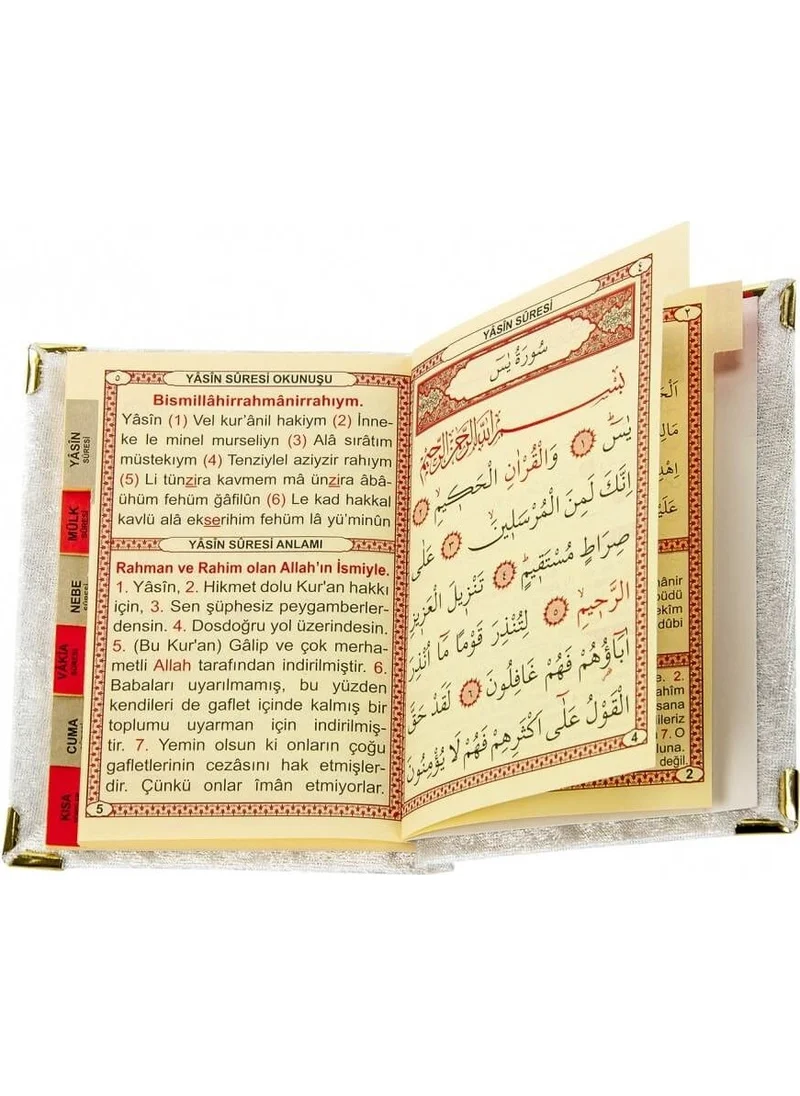 ٥
YÂSÎN SÛRESİ OKUNUŞU
Bismillâhirrahmânirrahıym.
Yâsîn (1) Vel kur'ânil hakiym (2) İnne-
ke le minel murseliyn (3) Alâ sırâtım
müstekıym (4) Tenziylel aziyzir rahıym
(5) Li tünzira kavmem mâ ünzira âbâ-
ühüm fehüm ğafilûn (6) Le kad hakkal
kavlü alâ ekserihim fehüm lâ yü'minûn
YÂSÎN SÛRESİ ANLAMI
Rahman ve Rahim olan Allah'ın İsmiyle.
1. Yâsîn, 2. Hikmet dolu Kur'an hakkı
için, 3. Sen şüphesiz peygamberler-
densin. 4. Dosdoğru yol üzerindesin.
5. (Bu Kur'an) Gâlip ve çok merha-
metli Allah tarafından indirilmiştir. 6.
Babaları uyarılmamış, bu yüzden
kendileri de gaflet içinde kalmış bir
toplumu uyarman için indirilmiş-
tir. 7. Yemin olsun ki onların çoğu
gafletlerinin cezâsını hak etmişler-
dir. Çünkü onlar îmân etmiyorlar.
5
YÂSÎN
SÛRESİ
MÜLK
SÛRESİ
NEBE
VÂKIA
SÛRESİ
CUMA
KISA
٤
YÂSÎN SÛRESİ
سُورَةُ يٰسٓ
بِسْمِ اللّٰهِ الرَّحْمٰنِ الرَّحِيمِ
يٰسٓ ﴿١﴾ وَالْقُرْاٰنِ الْحَكِيمِ ﴿٢﴾
اِنَّكَ لَمِنَ الْمُرْسَلِينَ ﴿٣﴾ عَلٰى
صِرَاطٍ مُسْتَقِيمٍ ﴿٤﴾ تَنْزِيلَ الْعَزِيزِ
الرَّحِيمِ ﴿٥﴾ لِتُنْذِرَ قَوْمًا مَٓا اُنْذِرَ
اٰبَٓاؤُهُمْ فَهُمْ غَافِلُونَ ﴿٦﴾ لَقَدْ حَقَّ
الْقَوْلُ عَلٰٓى اَكْثَرِهِمْ فَهُمْ لَا يُؤْمِنُونَ
4
٢
مَالِكِ
اِهْدِ
عَلَيْ
2